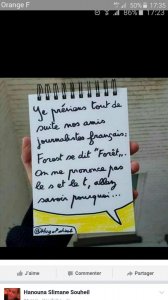 Orange F
50% 17:35
86% 17:23
Je préviens tout de
suite nos amis
journalistes français:
Forest se dit "Forêt".
On ne prononce pas
le s et le t, allez
savoir pourquoi...
J'aime
Commenter
Partager
Hanouna Slimane Souheil